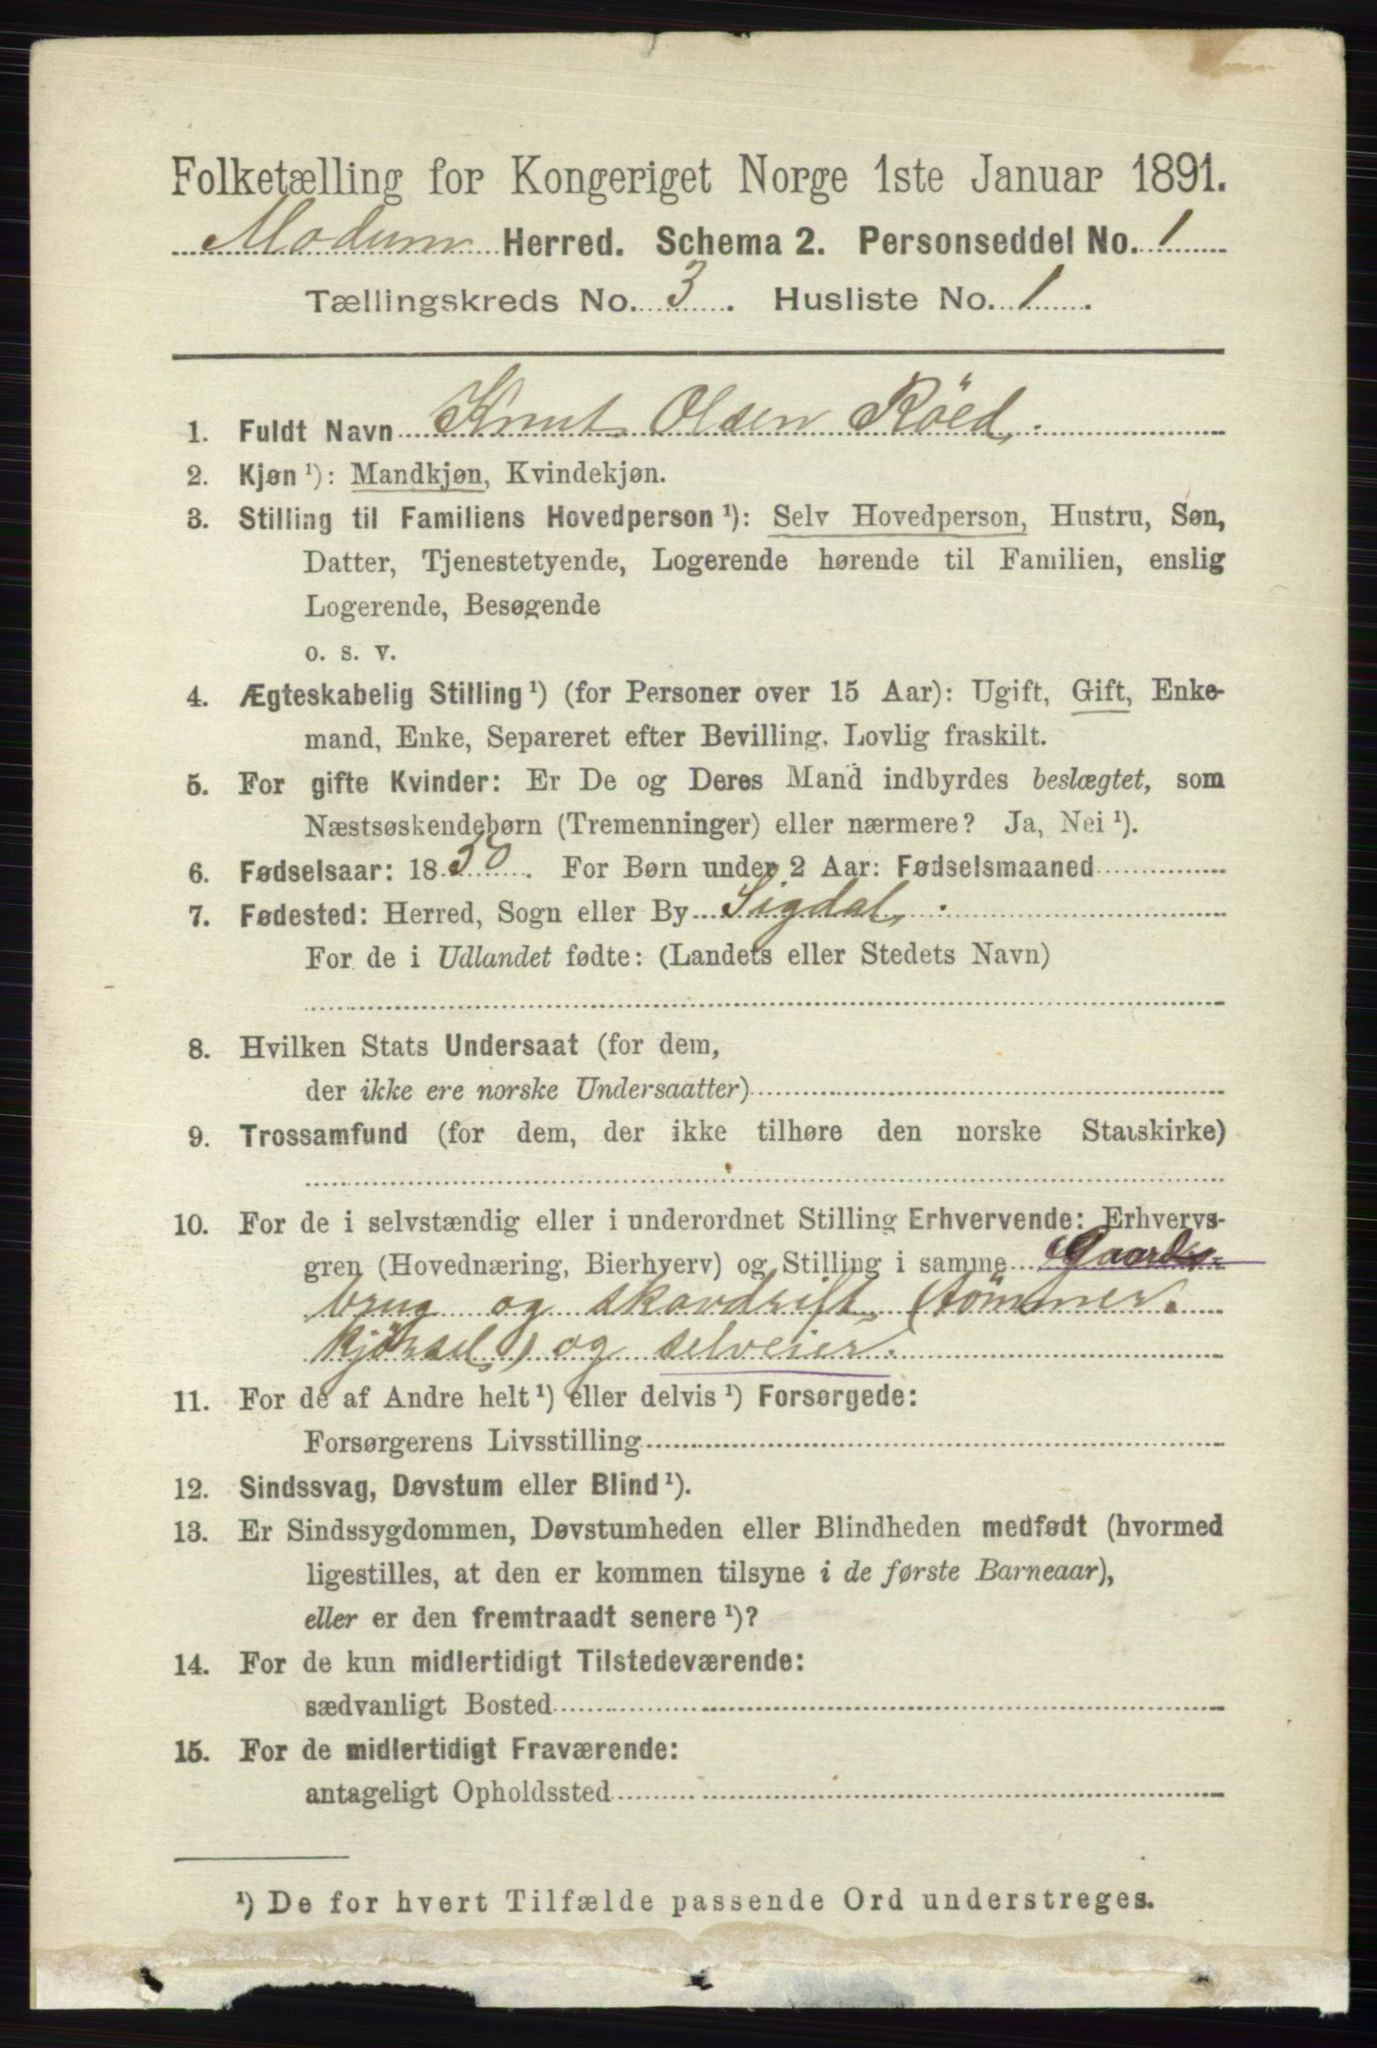 Folketælling for Kongeriget Norge 1ste Januar 1891.
Modum Herred. Schema 2. Personseddel No. 1
Tællingskreds No. 3. Husliste No. 1.
1. Fuldt Navn Knut Olsen Röed.
2. Kjøn ¹): Mandkjøn, Kvindekjøn.
3. Stilling til Familiens Hovedperson ¹): Selv Hovedperson, Hustru, Søn,
Datter, Tjenestetyende, Logerende hørende til Familien, enslig
Logerende, Besøgende
o. s. v.
4. Ægteskabelig Stilling ¹) (for Personer over 15 Aar): Ugift, Gift, Enke-
mand, Enke, Separeret efter Bevilling, Lovlig fraskilt.
5. For gifte Kvinder: Er De og Deres Mand indbyrdes beslægtet, som
Næstsøskendebørn (Tremenninger) eller nærmere? Ja, Nei ¹).
6. Fødselsaar: 1830. For Børn under 2 Aar: Fødselsmaaned
7. Fødested: Herred, Sogn eller By Sigdal.
For de i Udlandet fødte: (Landets eller Stedets Navn)
8. Hvilken Stats Undersaat (for dem,
der ikke ere norske Undersaatter)
9. Trossamfund (for dem, der ikke tilhøre den norske Statskirke)
10. For de i selvstændig eller i underordnet Stilling Erhvervende: Erhvervs-
gren (Hovednæring, Bierhverv) og Stilling i samme Gaards-
brug og skovdrift (tömmer.
kjörsel) og selveier.
11. For de af Andre helt ¹) eller delvis ¹) Forsørgede:
Forsørgerens Livsstilling
12. Sindssvag, Døvstum eller Blind ¹).
13. Er Sindssygdommen, Døvstumheden eller Blindheden medfødt (hvormed
ligestilles, at den er kommen tilsyne i de første Barneaar),
eller er den fremtraadt senere ¹)?
14. For de kun midlertidigt Tilstedeværende:
sædvanligt Bosted
15. For de midlertidigt Fraværende:
antageligt Opholdssted
¹) De for hvert Tilfælde passende Ord understreges.